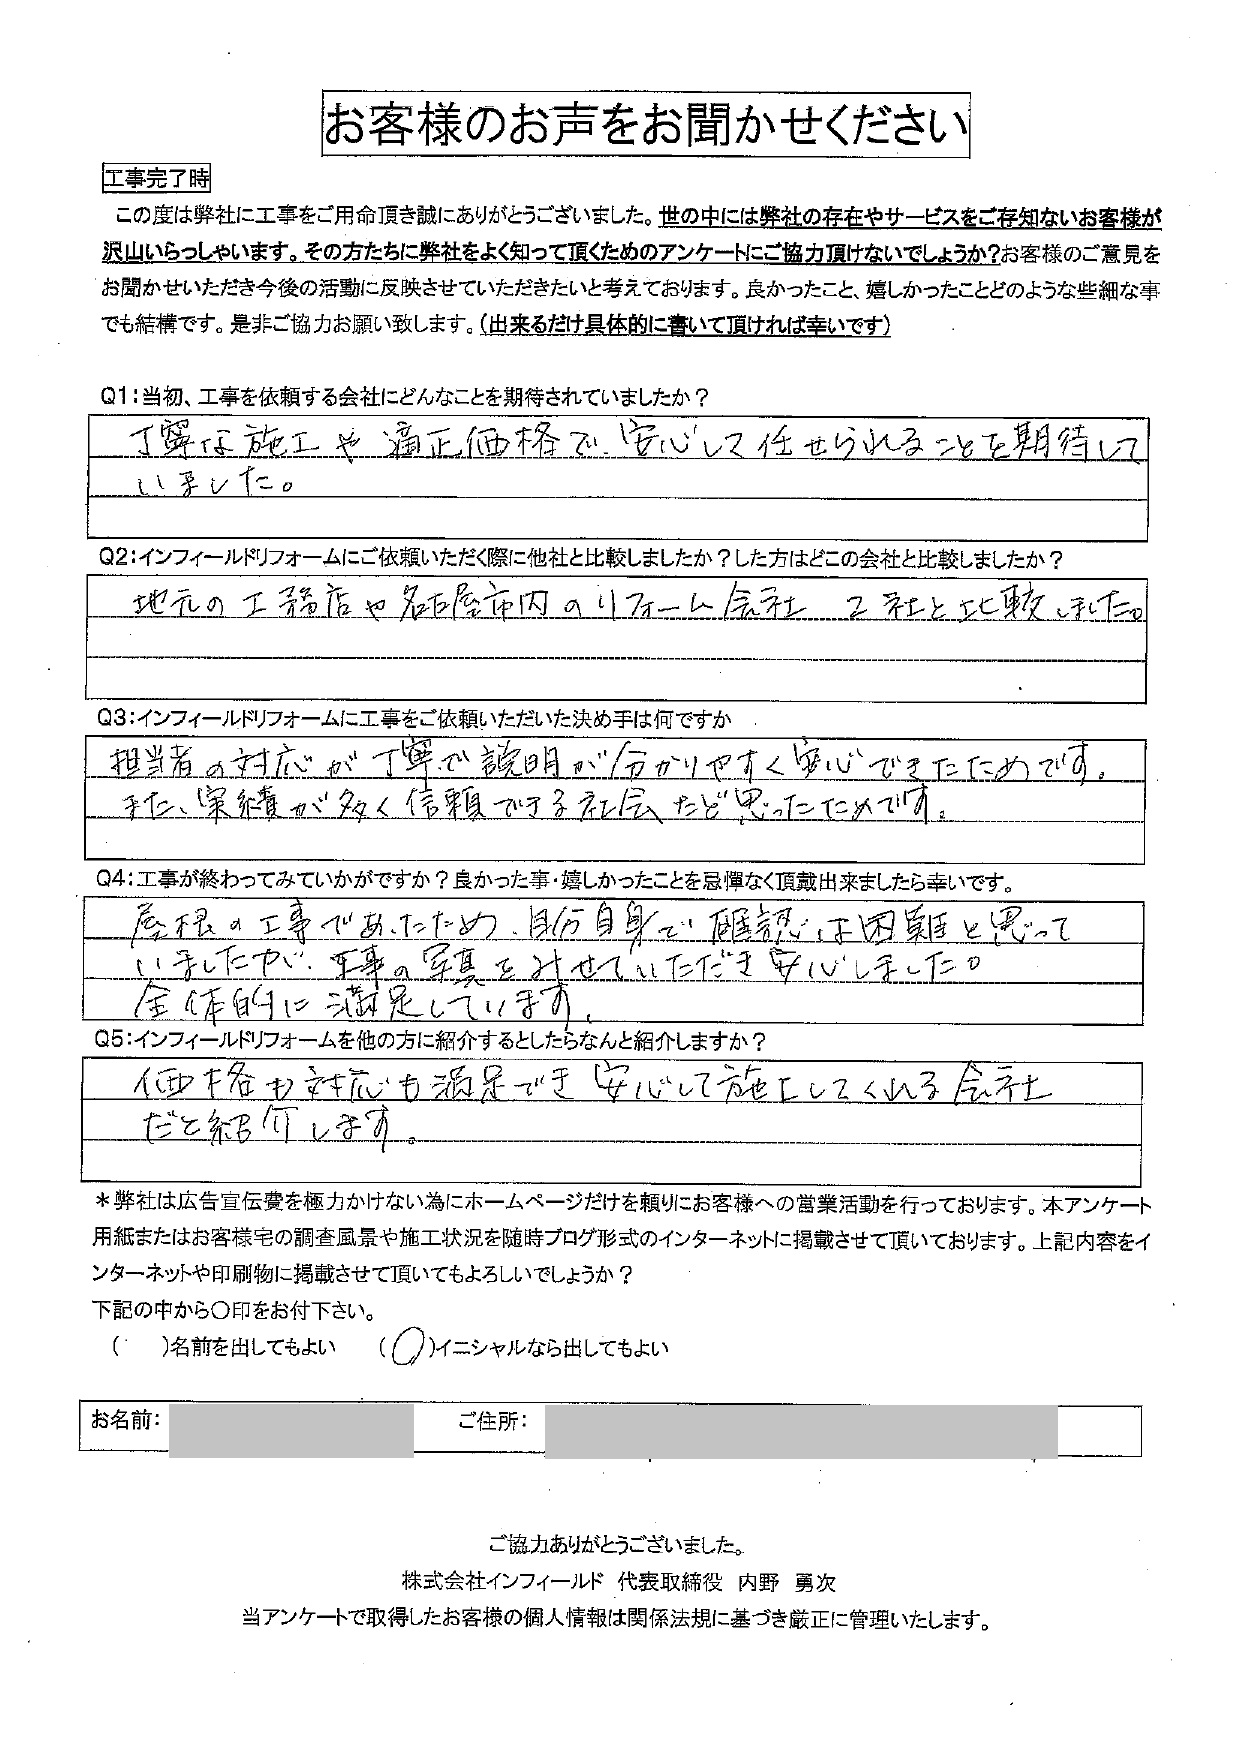 お客様のお声をお聞かせください
工事完了時
この度は弊社に工事をご用命頂き誠にありがとうございました。世の中には弊社の存在やサービスをご存知ないお客様が
沢山いらっしゃいます。その方たちに弊社をよく知って頂くためのアンケートにご協力頂けないでしょうか?お客様のご意見を
お聞かせいただき今後の活動に反映させていただきたいと考えております。良かったこと、嬉しかったことどのような些細な事
でも結構です。是非ご協力お願い致します。(出来るだけ具体的に書いて頂ければ幸いです)
Q1:当初、工事を依頼する会社にどんなことを期待されていましたか?
丁寧な施工や適正価格で、安心して任せられることを期待して
いました。
Q2:インフィールドリフォームにご依頼いただく際に他社と比較しましたか?した方はどこの会社と比較しましたか?
地元の工務店や名古屋市内のリフォーム会社 2社と比較しました。
Q3:インフィールドリフォームに工事をご依頼いただいた決め手は何ですか
担当者の対応が丁寧で説明が分かりやすく安心できたためです。
また、実績が多く信頼できる社会だと思ったためです。
Q4:工事が終わってみていかがですか?良かった事・嬉しかったことを忌憚なく頂戴出来ましたら幸いです。
屋根の工事であったため、自分自身で確認は困難と思って
いましたが、工事の写真をみせていただき安心しました。
全体的に満足しています。
Q5:インフィールドリフォームを他の方に紹介するとしたらなんと紹介しますか?
価格も対応も満足でき安心して施工してくれる会社
だと紹介します。
*弊社は広告宣伝費を極力かけない為にホームページだけを頼りにお客様への営業活動を行っております。本アンケート
用紙またはお客様宅の調査風景や施工状況を随時ブログ形式のインターネットに掲載させて頂いております。上記内容をイ
ンターネットや印刷物に掲載させて頂いてもよろしいでしょうか?
下記の中から〇印をお付下さい。
( )名前を出してもよい (〇)イニシャルなら出してもよい
お名前: ご住所:
ご協力ありがとうございました。
株式会社インフィールド 代表取締役 内野 勇次
当アンケートで取得したお客様の個人情報は関係法規に基づき厳正に管理いたします。